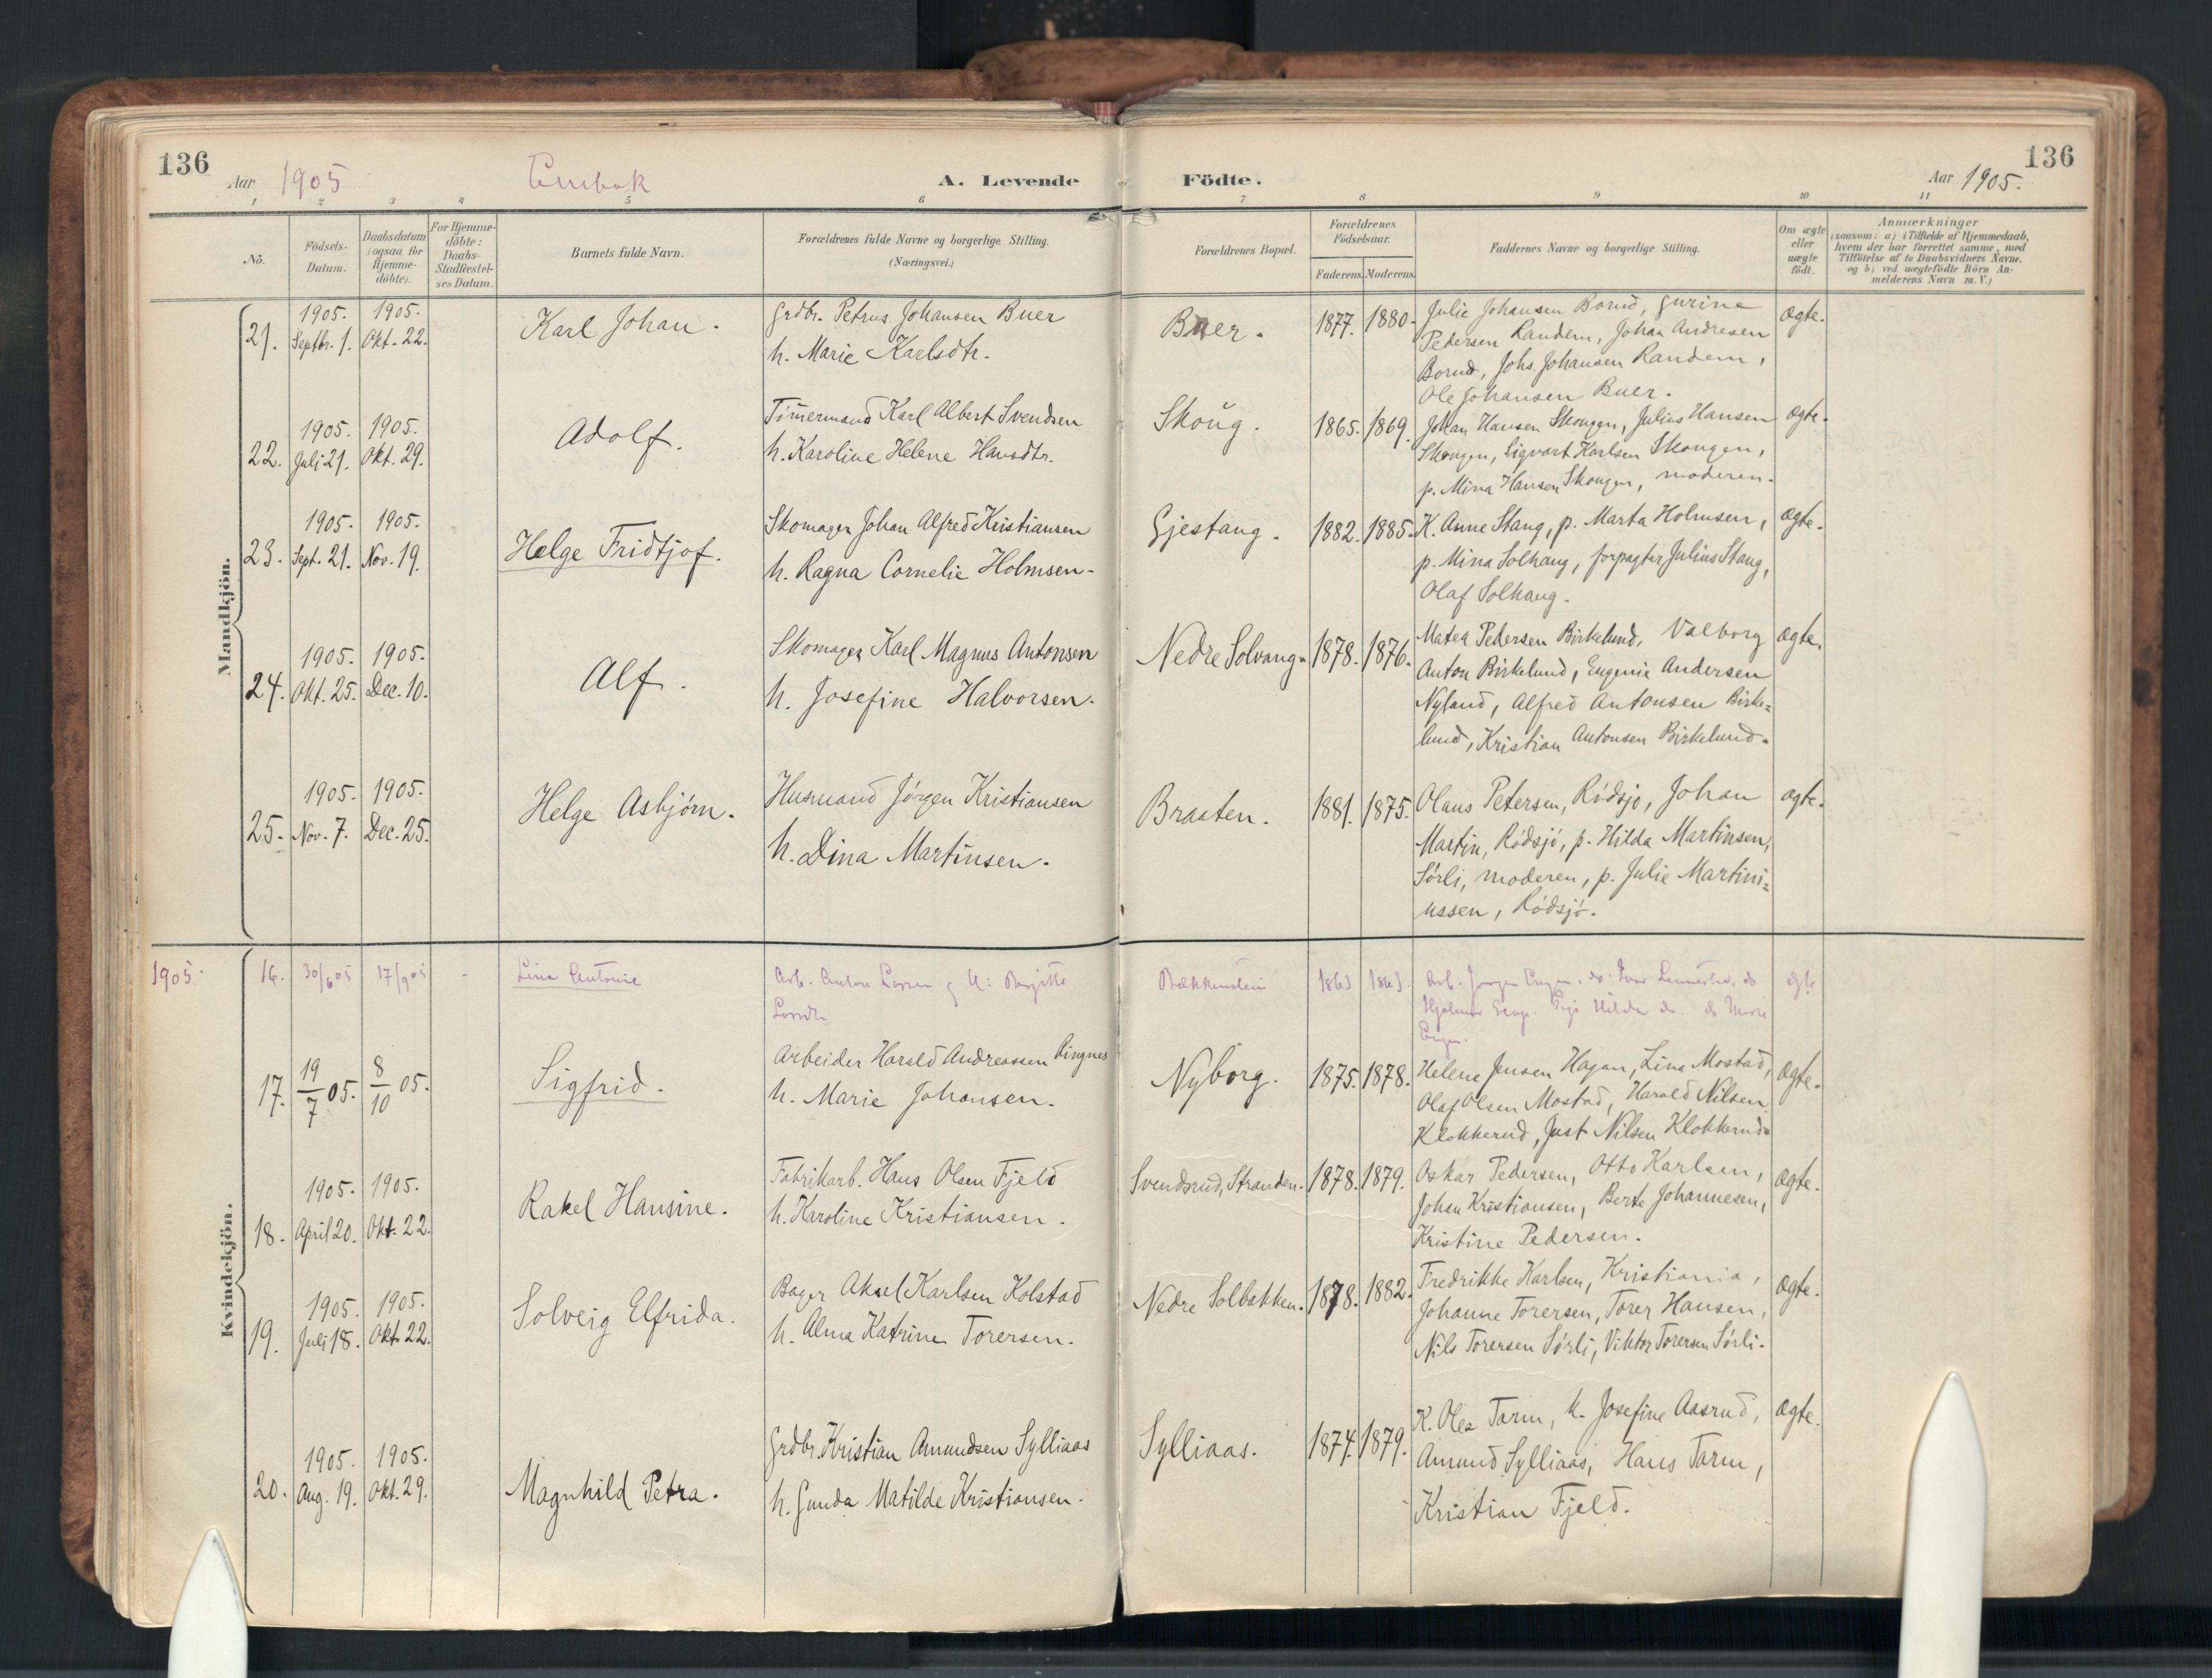 136
Aar 1905
A. Levende Födte.
Aar 1905.
136
1 2 3 4 5 6 7 8 9 10 11
Nò.
Födsels-
Datum.
Daabsdatum
(ogsaa for
Hjemme-
döbte).
For Hjemme-
döbte:
Daabs-
Stadfæstel-
ses Datum.
Barnets fulde Navn.
Forældrenes fulde Navne og borgerlige Stilling.
(Næringsvei.)
Forældrenes Bopæl.
Forældrenes
Födselsaar.
Faderens. Moderens.
Faddernes Navne og borgerlige Stilling.
Om ægte
eller
uægte
født.
Anmærkninger
(saasom: a) i Tilfælde af Hjemmedaab,
hvem der har forrettet samme, med
Tilföielse af to Daabsvidners Navne.
og b) ved uægtefödte Börn An-
melderens Navn m.V.)
Mandkjön.
21.
1905.
Septbr. 1.
1905.
Okt. 22.
Karl Johan.
Grdbr. Petrus Johansen Buer
h. Marie Karlsdtr.
Buer.
1877.
1880.
Julie Johansen Borud, Gurine
Pedersen Randem, Johan Andresen
Borud, Johs. Johansen Randem,
Ole Johansen Buer.
Ægte.
22.
1905.
Juli 21.
1905.
Okt. 29.
Adolf.
Tömermand Karl Albert Svendsen
h. Karoline Helene Hansdtr.
Skoug.
1865.
1869.
Johan Hansen Skougen, Julius Hansen
Skougen, Sigvart Karlsen Skougen,
p. Mina Hansen Skougen, moderen.
Ægte.
23.
1905.
Sept. 21.
1905.
Nov. 19.
Helge Fridtjof.
Skomager Johan Alfred Kristiansen
h. Ragna Cornelie Holmsen.
Gjestang.
1882.
1885.
K. Anne Stang, p. Marta Holmsen,
p. Mina Solhaug, forpagter Julius Stang,
Olaf Solhaug.
Ægte.
24.
1905.
Okt. 25.
1905.
Dec. 10.
Alf.
Skomager Karl Magnus Antonsen
h. Josefine Halvorsen.
Nedre Solvang.
1878.
1876.
Matea Pedersen Birkelund, Valborg
Anton Birkelund, Eugenie Andersen
Nyland, Alfred Antonsen Birke=
lund, Kristian Antonsen Birkelund.
Ægte.
25.
1905.
Nov. 7.
1905.
Dec. 25.
Helge Asbjörn.
Husmand Jörgen Kristiansen
h. Dina Martinsen.
Braaten.
1881.
1875.
Olaus Petersen, Rödsjö, Johan
Martin, Rödsjö, p. Hilda Martinsen,
Sörli, moderen, p. Julie Martini=
ussen, Rödsjö.
ægte.
Kvindekjön.
1905.
16.
30/6 05
17/9 05
Lina Antonie
Arb. Anton
Bækkenstein
1863
1863.
Hjalmar
Hilda
Marie
17.
19/7 05.
8/10 05.
Sigfrid.
Arbeider Harald Andreassen Ringnes
h. Marie Johansen.
Nyborg.
1875.
1878.
Helene Jensen Hagan, Lina Mostad,
Olaf Olsen Mostad, Harald Nilsen
Klokkerud, Just Nilsen Klokkerud.
Ægte.
18.
1905.
April 20.
1905.
Okt. 22.
Rakel Hansine.
Fabrikarb. Hans Olsen Fjeld
h. Karoline Kristiansen.
Svendsrud, Stranden.
1878.
1879.
Oskar Pedersen, Otto Karlsen,
Johan Kristiansen, Berte Johannesen,
Kristine Pedersen.
Ægte.
19.
1905.
Juli 18.
1905.
Okt. 22.
Solveig Elfrida.
Bager Aksel Karlsen Kolstad
h. Alma Katrine Torersen.
Nedre Solbakken.
1878.
1882.
Fredrikke Karlsen, Kristiania,
Johanne Torersen, Torer Hansen,
Nils Torersen Sörli, Viktor Torersen Sörli.
Ægte.
20.
1905.
Aug. 19.
1905.
Okt. 29.
Magnhild Petra.
Grdbr. Kristian Amundsen Sylliaas
h. Gunda Matilde Kristiansen.
Sylliaas.
1874.
1879.
K. Olea Tarm, k. Josefine Aasrud,
Amund Sylliaas, Hans Tarm,
Kristian Fjeld.
Ægte.